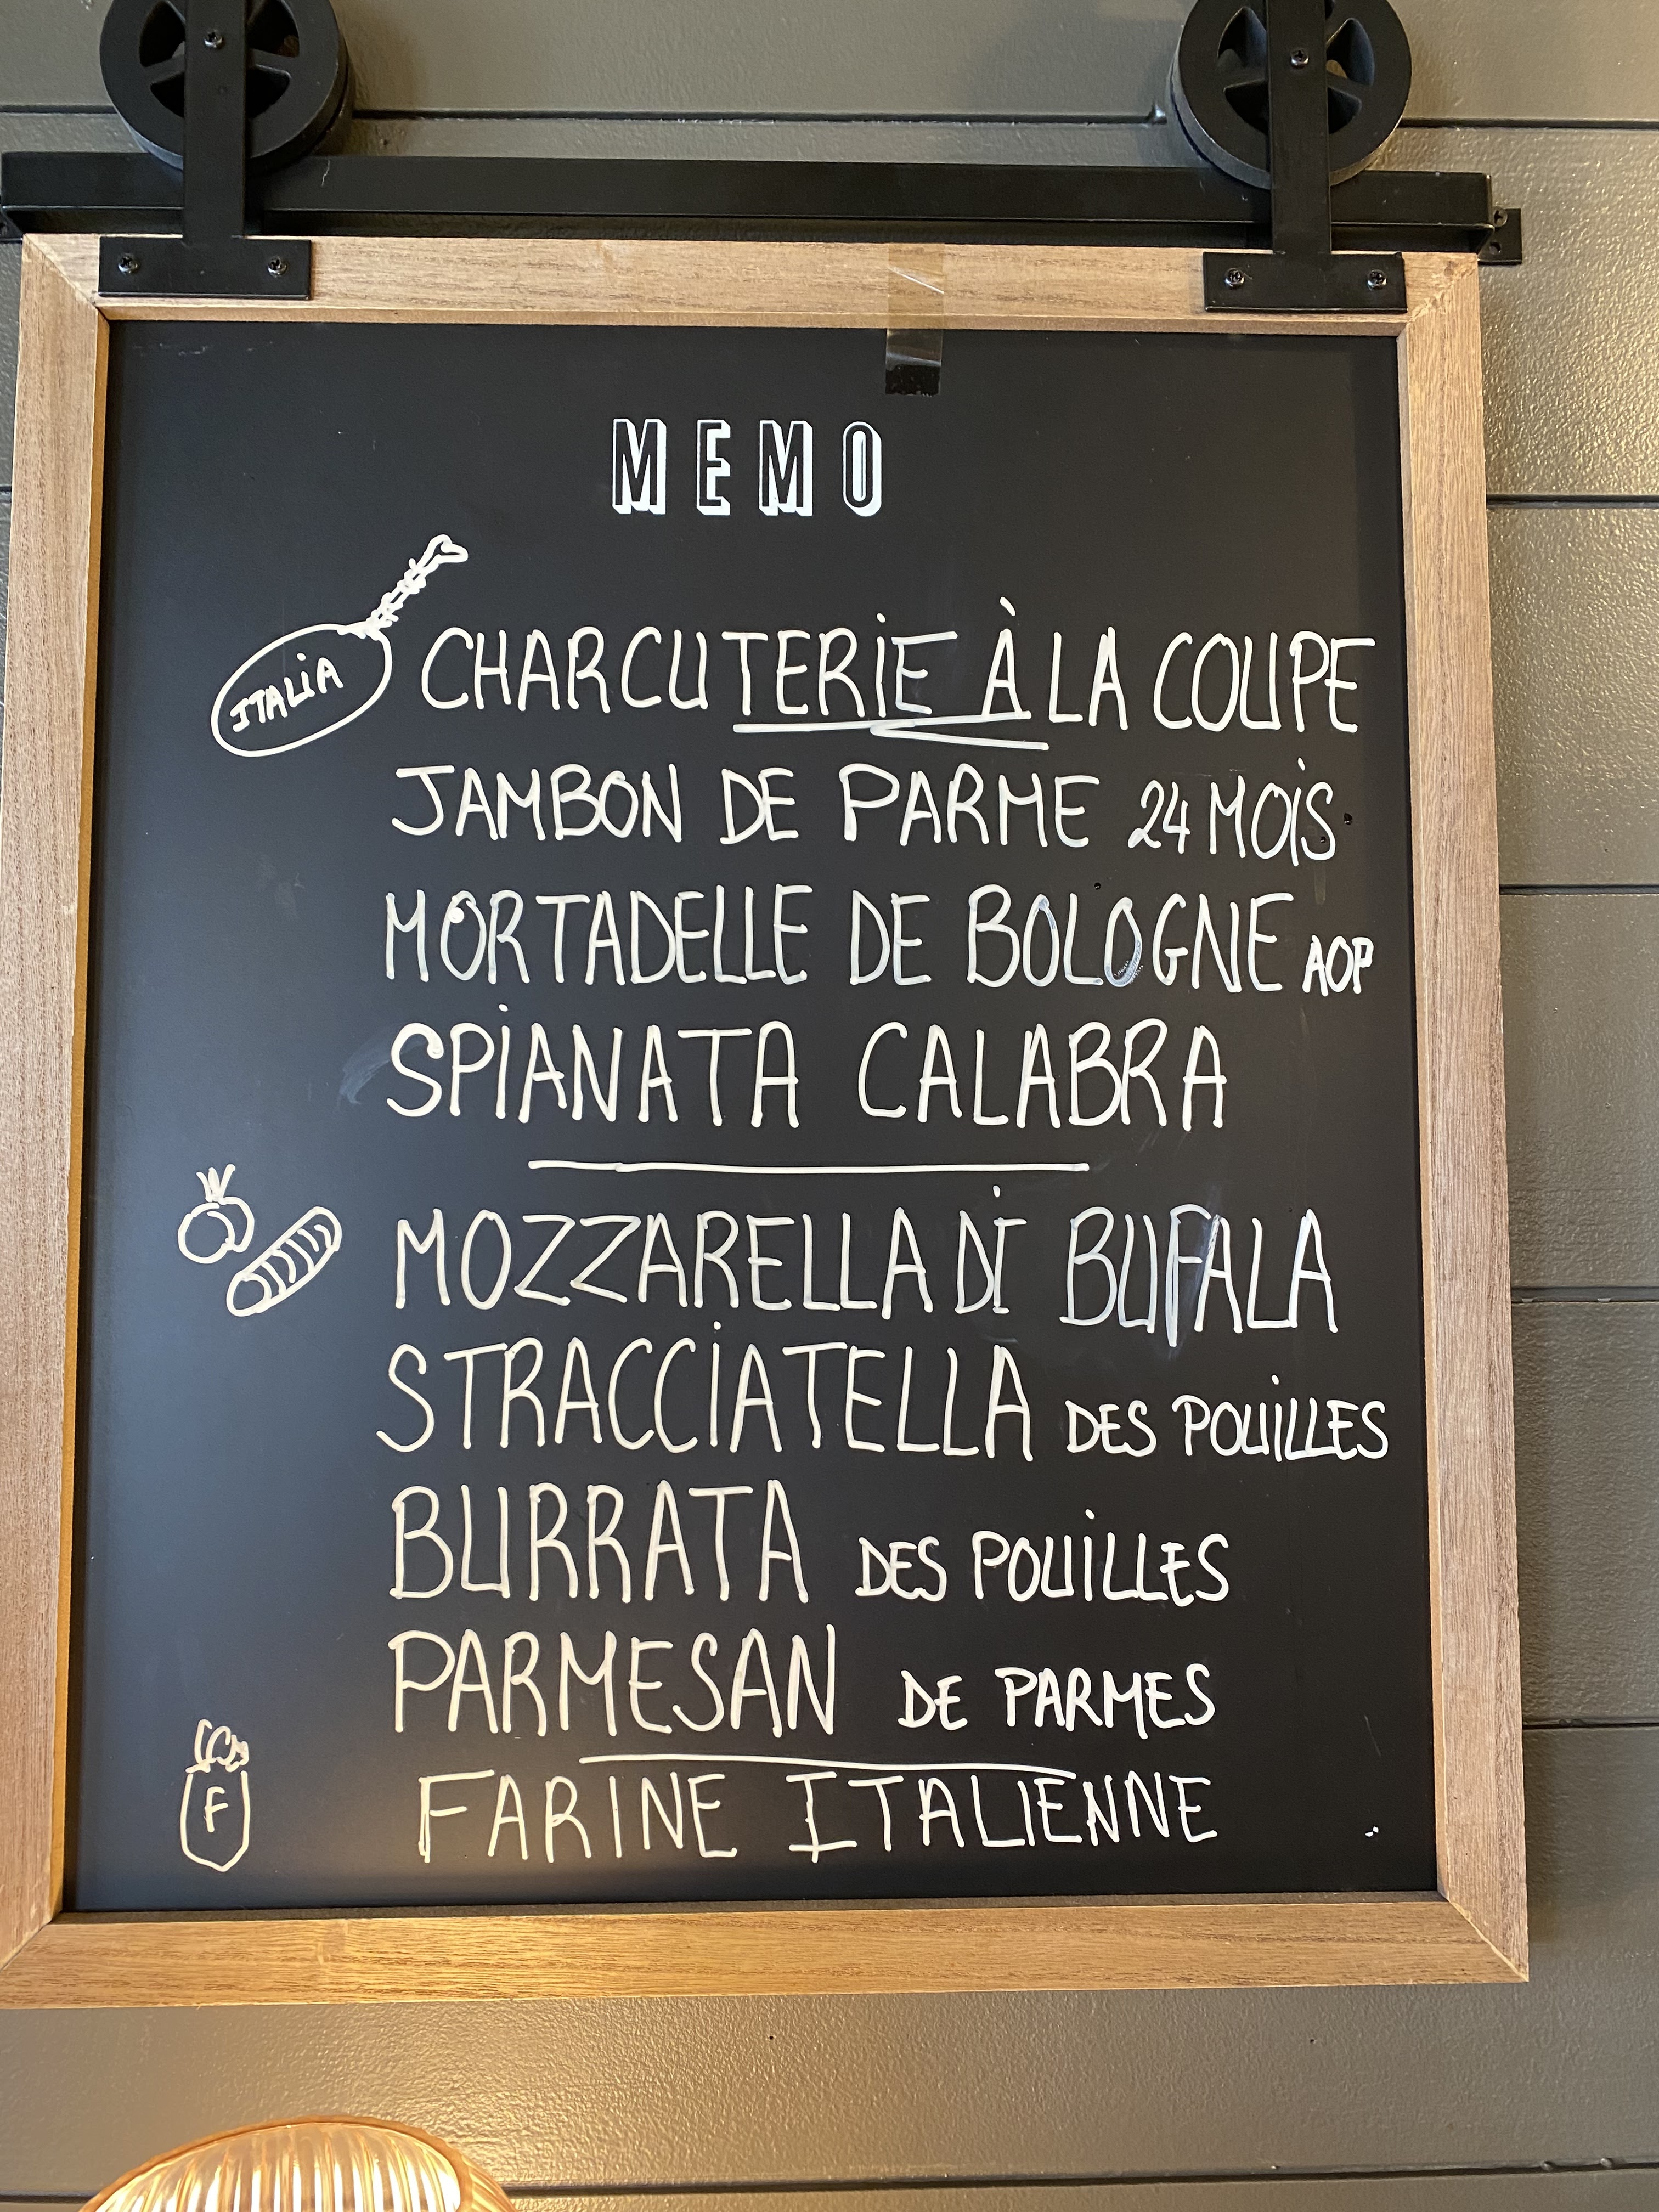 MEMO
ITALIA
CHARCUTERIE À LA COUPE
JAMBON DE PARME 24 MOIS
MORTADELLE DE BOLOGNE AOP
SPIANATA CALABRA
MOZZARELLA DI BUFALA
STRACCIATELLA DES POUILLES
BURRATA DES POUILLES
PARMESAN DE PARMES
F
FARINE ITALIENNE